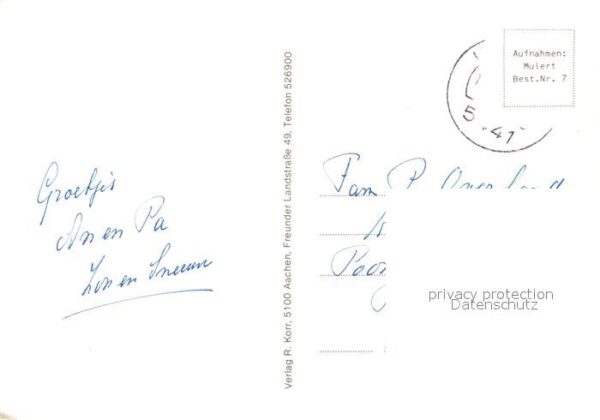 Groetjes
An en Pa
Zon en Sneeuw
Verlag R. Korr, 5100 Aachen, Freunder Landstraße 49, Telefon 526900
Aufnahmen:
Mulert
Best.Nr. 7
5
-41
Fam P.
privacy protection
Datenschutz